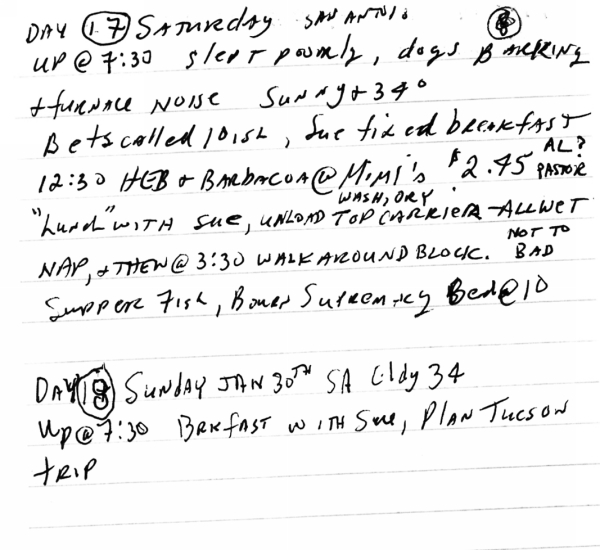 DAY 17 SATURDAY SAN ANTNIO 8
UP @ 7:30 slept poorly, dogs BARKING
+ FURNACE NOISE SUNNY + 34°
Bets called 10ish, Sue fixed breakfast
12:30 HEB + BARBACOA @ Mimi's $2.45 AL? PASTOR
WASH, DRY
"Lunch" WITH SUE, UNLOAD TOP CARRIER - ALL WET
NAP, + THEN @ 3:30 WALK AROUND BLOCK. NOT TO BAD
Supper Fish, Bourn Supremacy Bed @ 10
DAY 18 SUNDAY JAN 30TH SA Cldy 34
Up @ 7:30 BRKFAST WITH Sue, PLAN TUCSON
TRIP